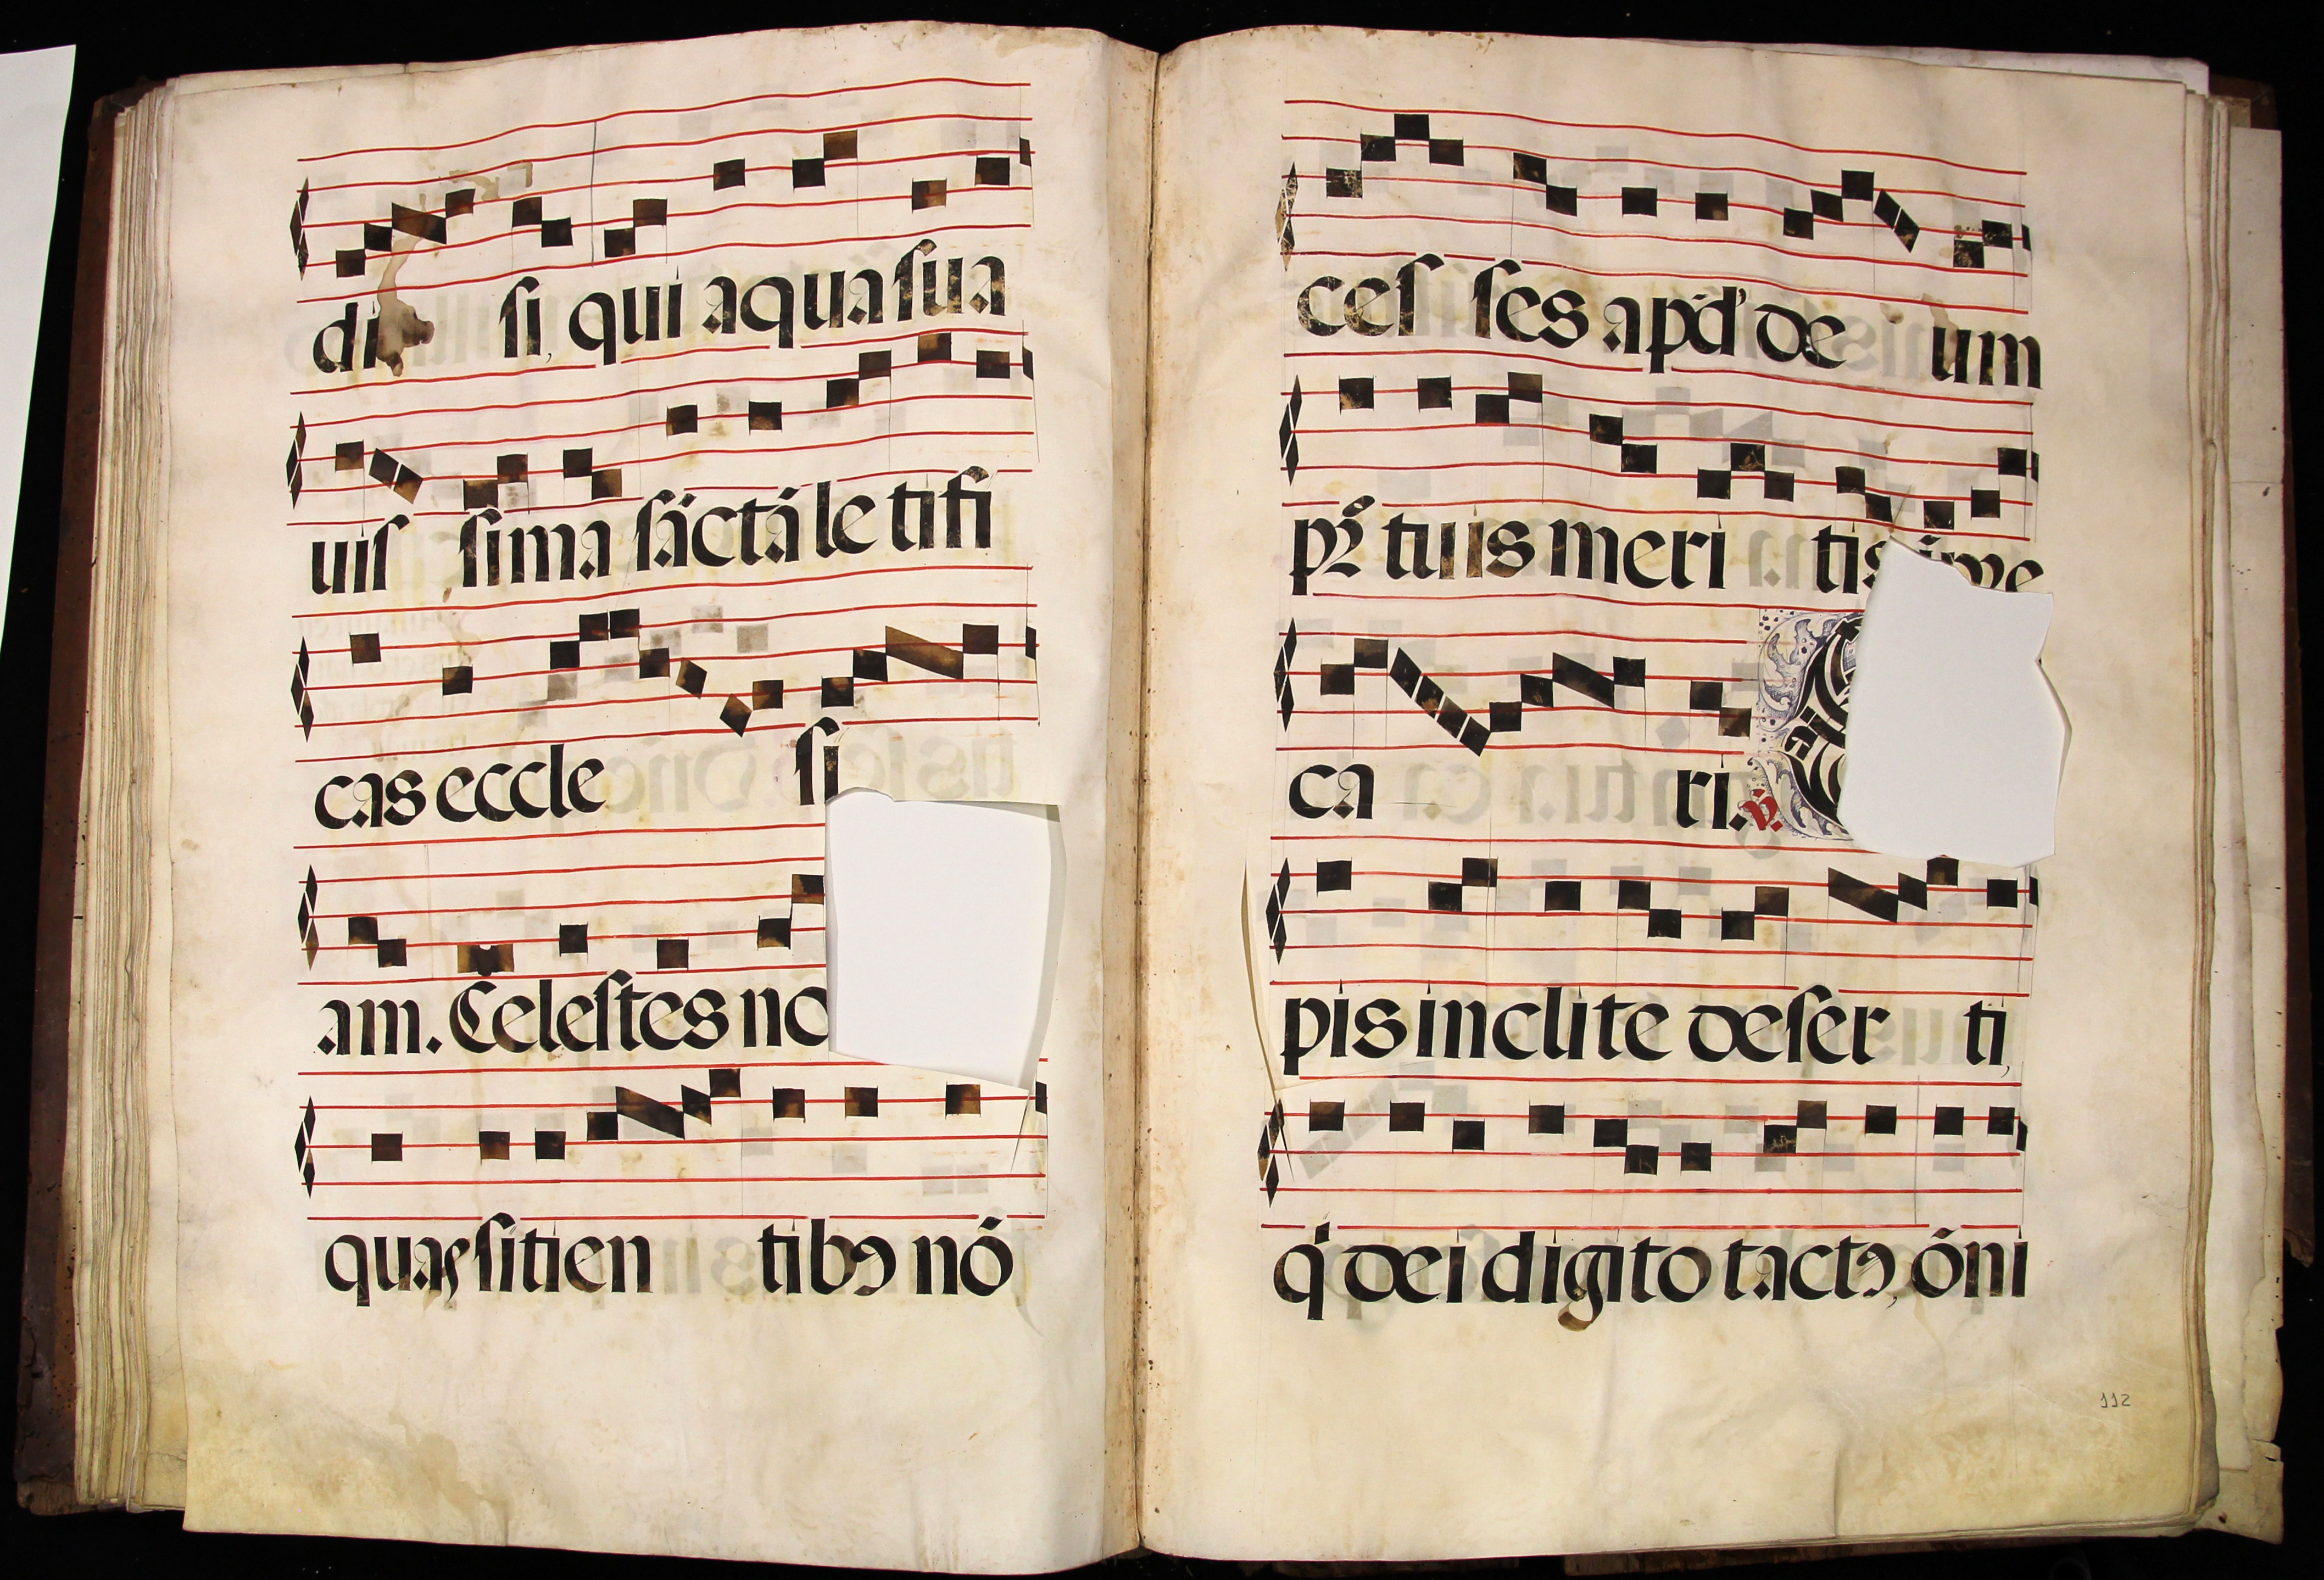 di si, qui aqua sua
uis sima sāctā letifi
cas eccle si
am. Celestes no
quaꝫ sitien tibꝰ nō
ces ses apd̕ de um
pr̄ tuis meri tis
ca ri. ℣.
pis inclite deser ti,
q̇ dei digito tactꝰ, ōni
112